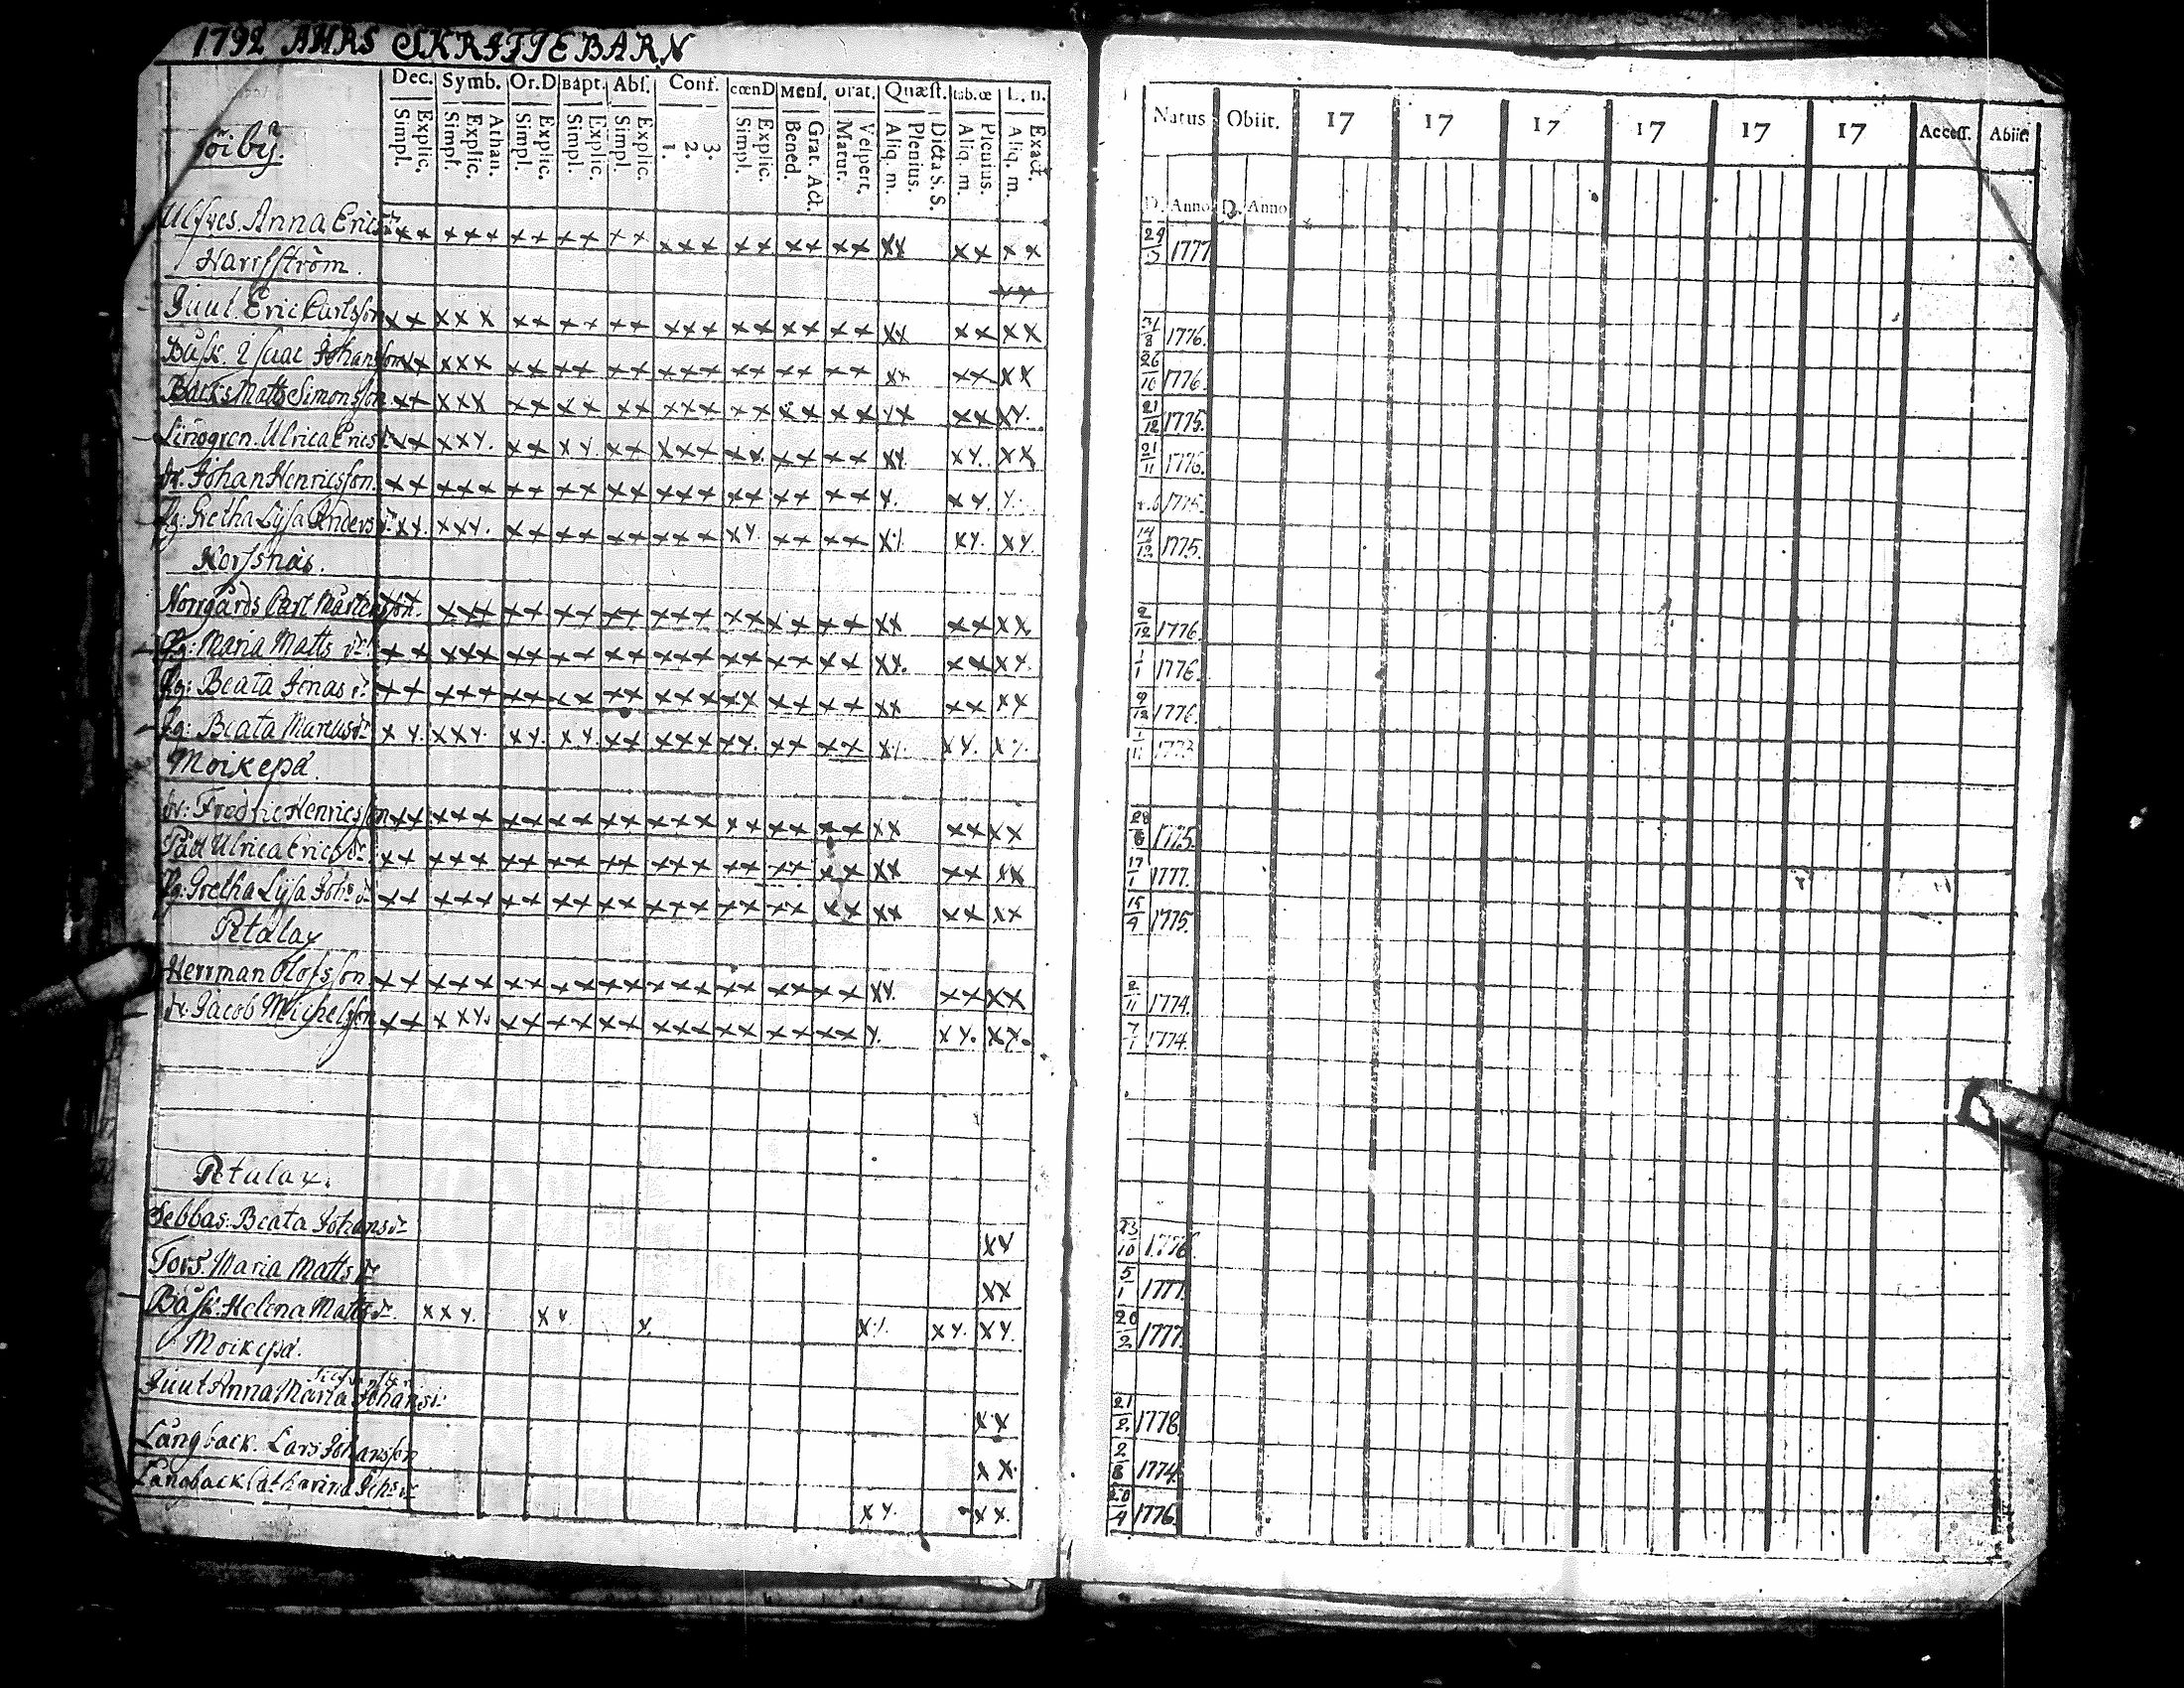 1792 AHRS SKRIFTEBARN
Dec. Symb. Or.D Bapt. Abs. Conf. cœnD Mens. orat. Quæst. tab.œ L. n.
Simpl. Explic. Simpl. Explic. Athan. Simpl. Explic. Simpl. Explic Simpl. Explic 1. 2. 3. Simpl. Explic. Bened. Grat. Act. Matut. Vespert. Aliq. m. Plenius. Dicta S. S. Aliq. m. Plenius. Aliq. m. Exact.
Natus Obiit. 17 17 17 17 17 17 Access. Abiit.
D. Anno D. Anno
Töiby.
Ulfves. Anna Erics dr 29/5 1777
Harfström.
Juul. Eric Carlsson 31/8 1776.
Båsk. Isaac Johansson 26/10 1776.
Backs Matts Simonsson 21/12 1775.
Linogren. Ulrica Erics dr 21/11 1776.
dr. Johan Henricsson 1775.
Pg: Gretha Lysa Anders dr 14/12 1775.
Korssnäs.
Norrgårds Carl Mårtensson. 2/12 1776.
Pg: Maria Matts dr 1/1 1776.
Pg: Beata Jonas dr 9/12 1776.
Pg: Beata Marcus dr 1/11 1773
Moikepä.
dr: Fredric Henricsson 28/6 1775.
Pått Ulrica Erics dr 17/1 1777.
Pg: Gretha Lysa Johs dr 15/9 1775.
Petalax
Herrman Olofsson 2/11 1774.
dr. Jacob Michelsson 7/1 1774.
Petalax.
Sebbas. Beata Johans dr 23/10 1776
Tors. Maria Matts dr 5/1 1777.
Båsk. Helena Matts dr. 20/2 1777.
Moikepä.
Juut Anna Maria Johans dr 21/2 1778.
Långback. Lars Johansson 2/8 1774.
Långback Catharina Johs dr 20/4 1776.